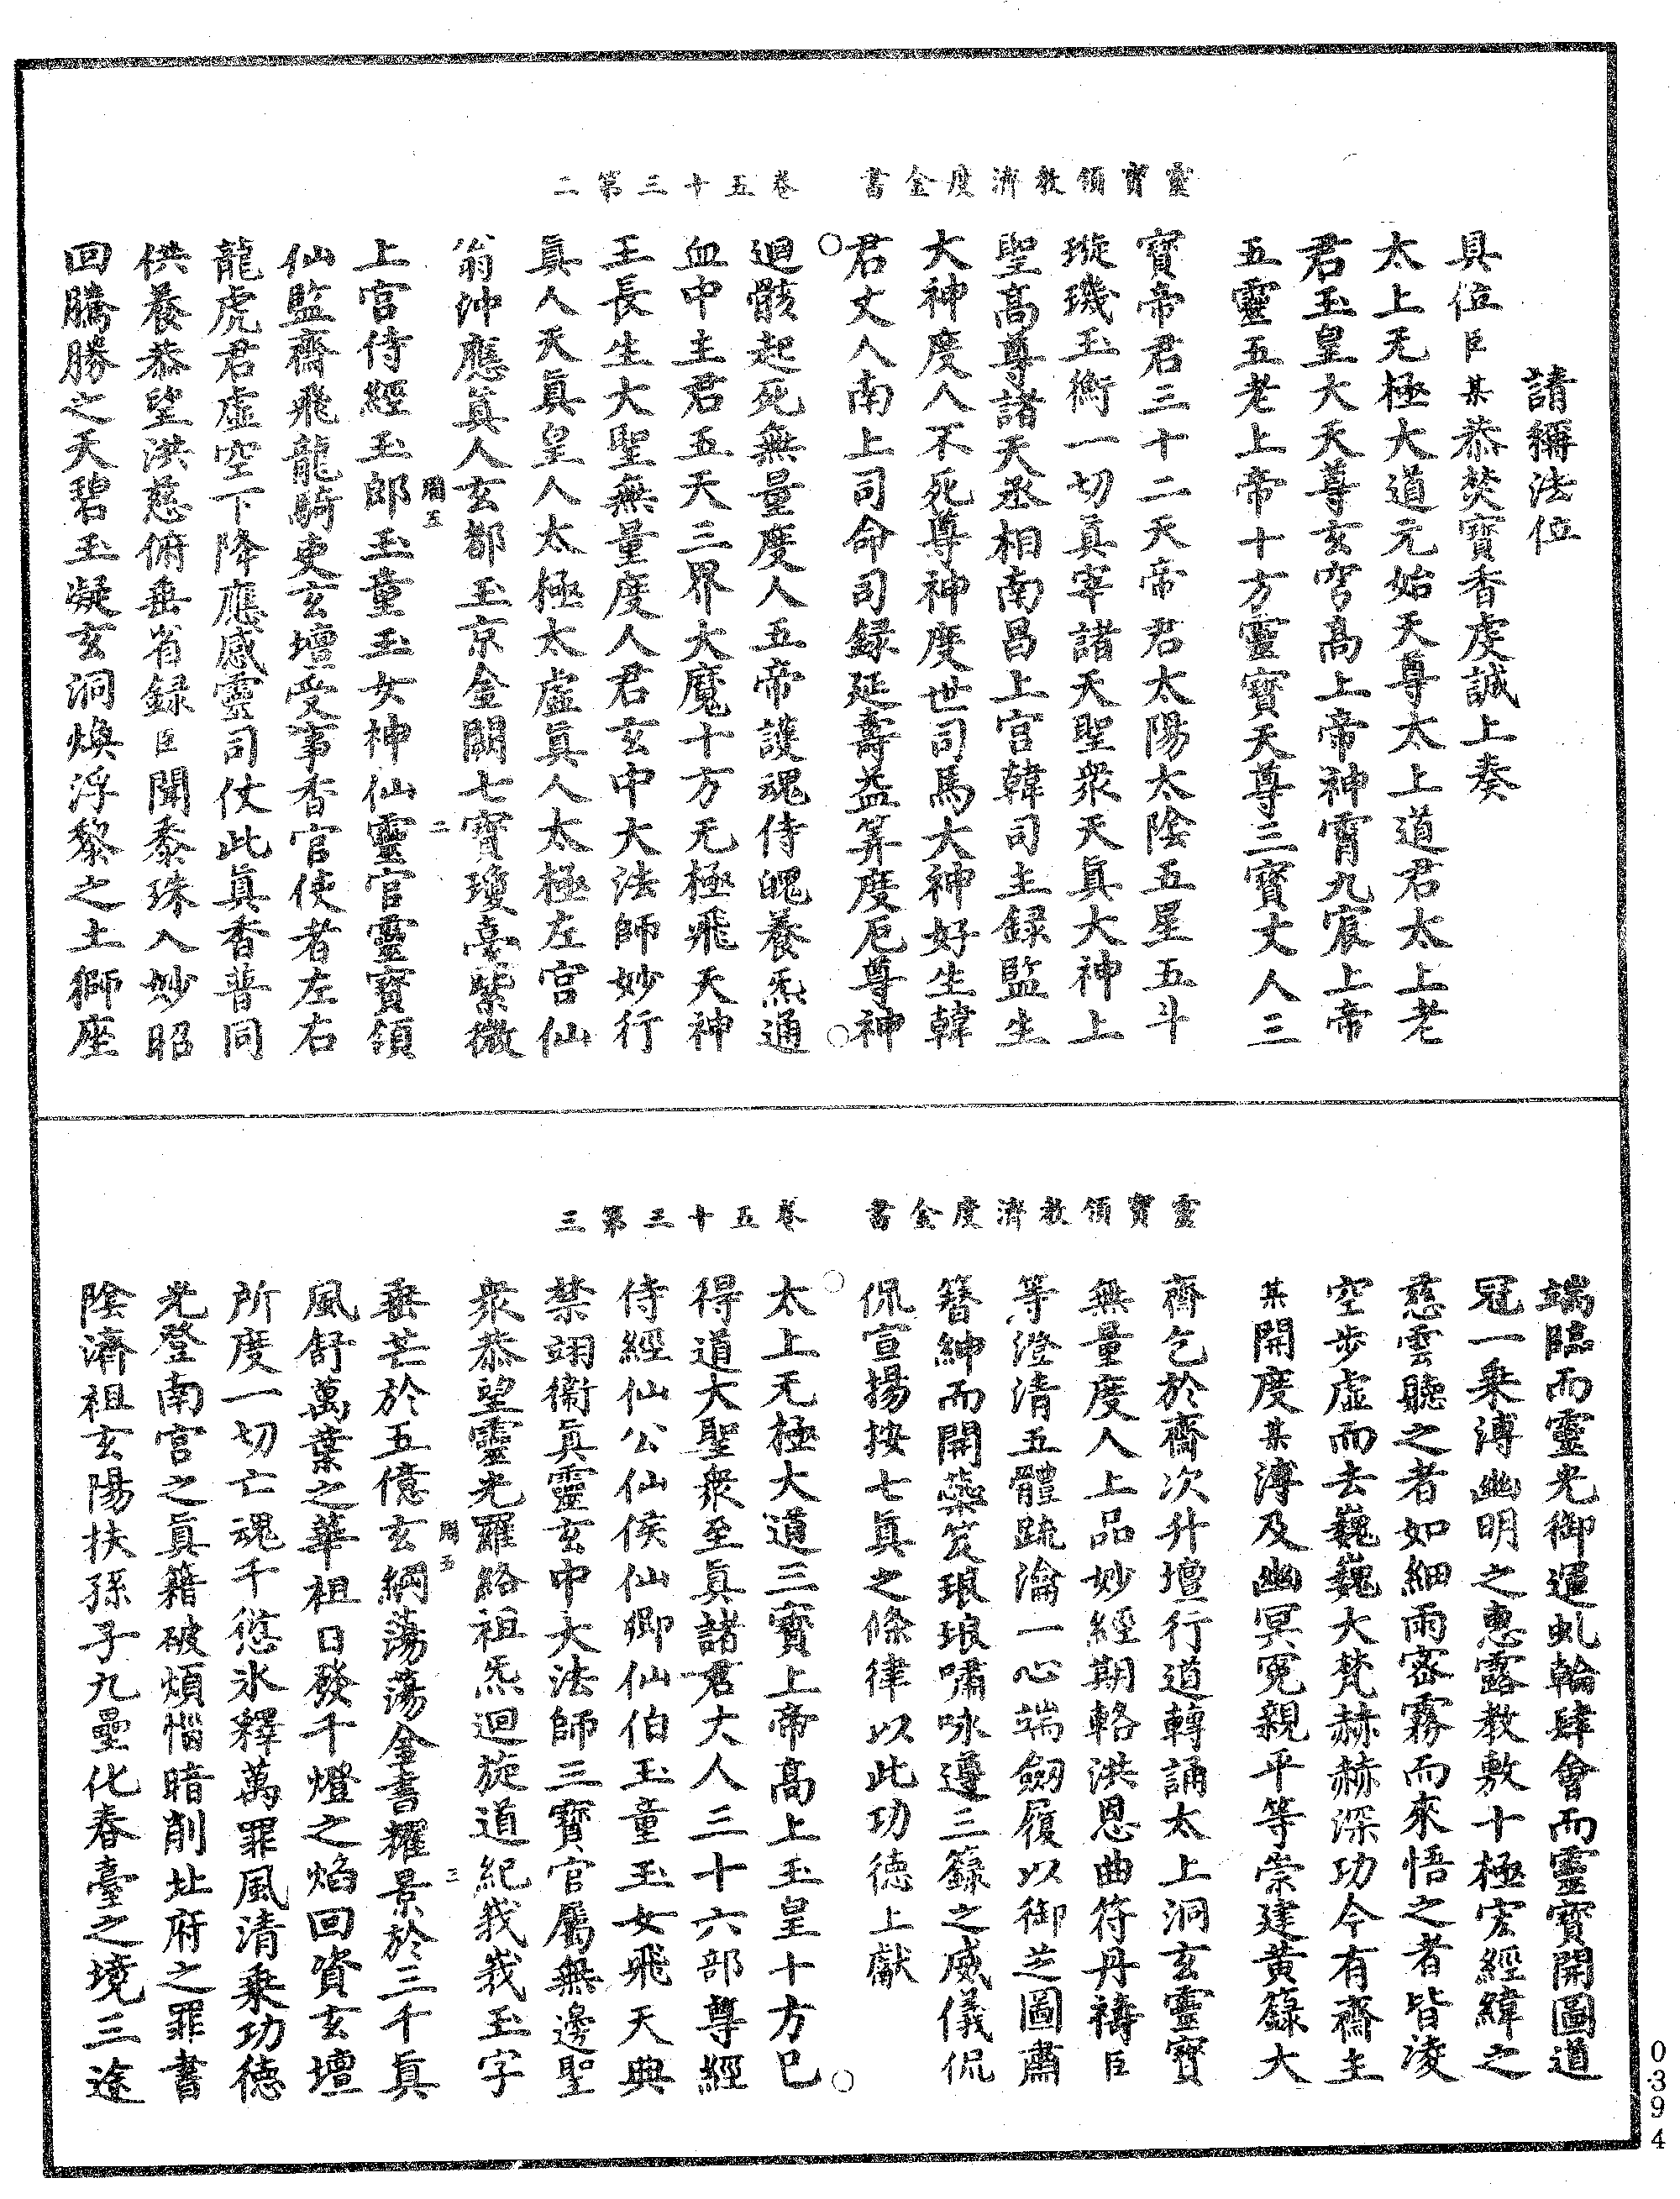 靈寶領教濟度金書　卷五十三第二
請稱法位
具位臣某恭焚寶香虔誠上奏
太上无極大道元始天尊太上道君太上老
君玉皇大天尊玄穹高上帝神霄九宸上帝
五靈五老上帝十方靈寶天尊三寶丈人三
寶帝君三十二天帝君太陽太陰五星五斗
璇璣玉衡一切真宰諸天聖衆天真大神上
聖高尊諸天丞相南昌上官韓司主録監生
大神度人不死尊神度世司馬大神好生韓
君丈人南上司命司録延壽益筭度厄尊神
迴骸起死無量度人五帝護魂侍魄養炁通
血中主君五天三界大魔十方无極飛天神
王長生大聖無量度人君玄中大法師妙行
真人天真皇人太極太虛真人太極左宮仙
翁沖應真人玄都玉京金闕七寶瓊臺紫微
上宮侍經玉郎玉童玉女神仙靈官靈寶領
仙監齋飛龍騎吏玄壇受事香官使者左右
龍虎君虛空下降應感靈司仗此真香普同
供養恭望洪慈俯垂省録臣聞黍珠入妙昭
回騰勝之天碧玉凝玄洞煥浮黎之土獅座
二
靈寶領教濟度金書　卷五十三第三
端臨而靈光御運虬輪肆會而靈寶開圖道
冠一乘溥幽明之惠露教敷十極宏經緯之
慈雲聽之者如細雨密霧而來悟之者皆淩
空步虛而去巍巍大梵赫赫深功今有齋主
某開度某溥及幽冥冤親平等崇建黃籙大
齊乞於齋次升壇行道轉誦太上洞玄靈寶
無量度人上品妙經期輅洪恩曲符丹禱臣
等澄清五體疏瀹一心端劒履以御芝圖肅
簪紳而開蘂笈琅琅嘯咏遵三籙之威儀侃
侃宣揚按七真之條律以此功德上獻
太上无極大道三寶上帝高上玉皇十方已
得道大聖衆至真諸君大人三十六部尊經
侍經仙公仙侯仙卿仙伯玉童玉女飛天典
禁翊衛真靈玄中大法師三寶官屬無邊聖
衆恭望靈光羅絡祖炁迴旋道紀莪莪玉字
垂芒於五億玄綱蕩蕩金書耀景於三千真
風舒萬葉之華祖日發千燈之焰回資玄壇
所度一切亡魂千愆冰釋萬罪風清乘功德
光登南宮之真籍破煩惱暗削北府之罪書
陰濟祖玄陽扶孫子九壘化春臺之境三途
三
0394